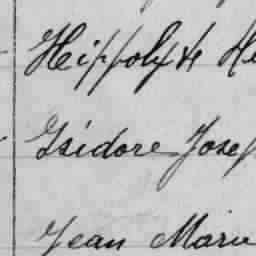 Hippolyte He
Isidore Josep
Jean Marie